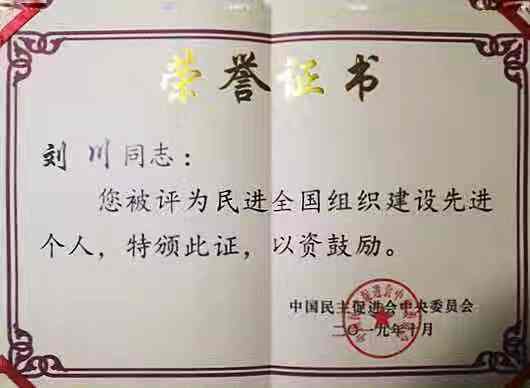 荣誉证书
刘川同志：
您被评为民进全国组织建设先进
个人，特颁此证，以资鼓励。
中国民主促进会中央委员会
二〇一九年十月